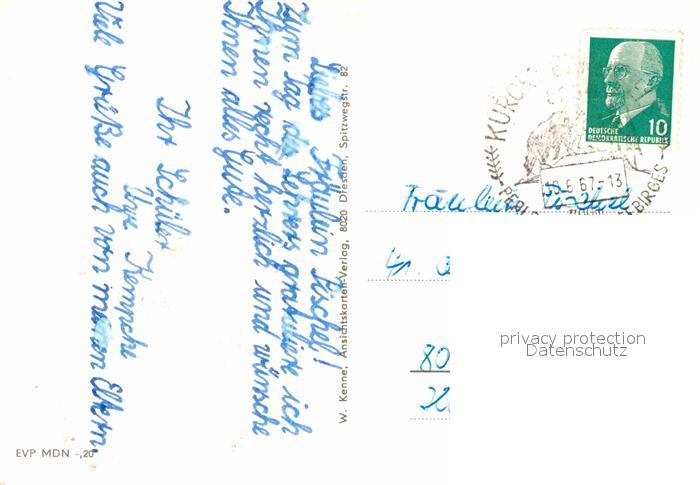 Liebes Fräulein Fischel!
Zum Tag des Lehrers gratuliere ich
Ihnen recht herzlich und wünsche
Ihnen alles Gute.
Ihr Schüler
Uwe
Viele Grüße auch von meinen Eltern.
W. Kenne, Ansichtskarten-Verlag, 8020 Dresden, Spitzwegstr. 82
EVP MDN -,20
KURORT
8.6.67-13
PERLE
GEBIRGES
10
DEUTSCHE
DEMOKRATISCHE REPUBLIK
Fräulein
80
privacy protection
Datenschutz